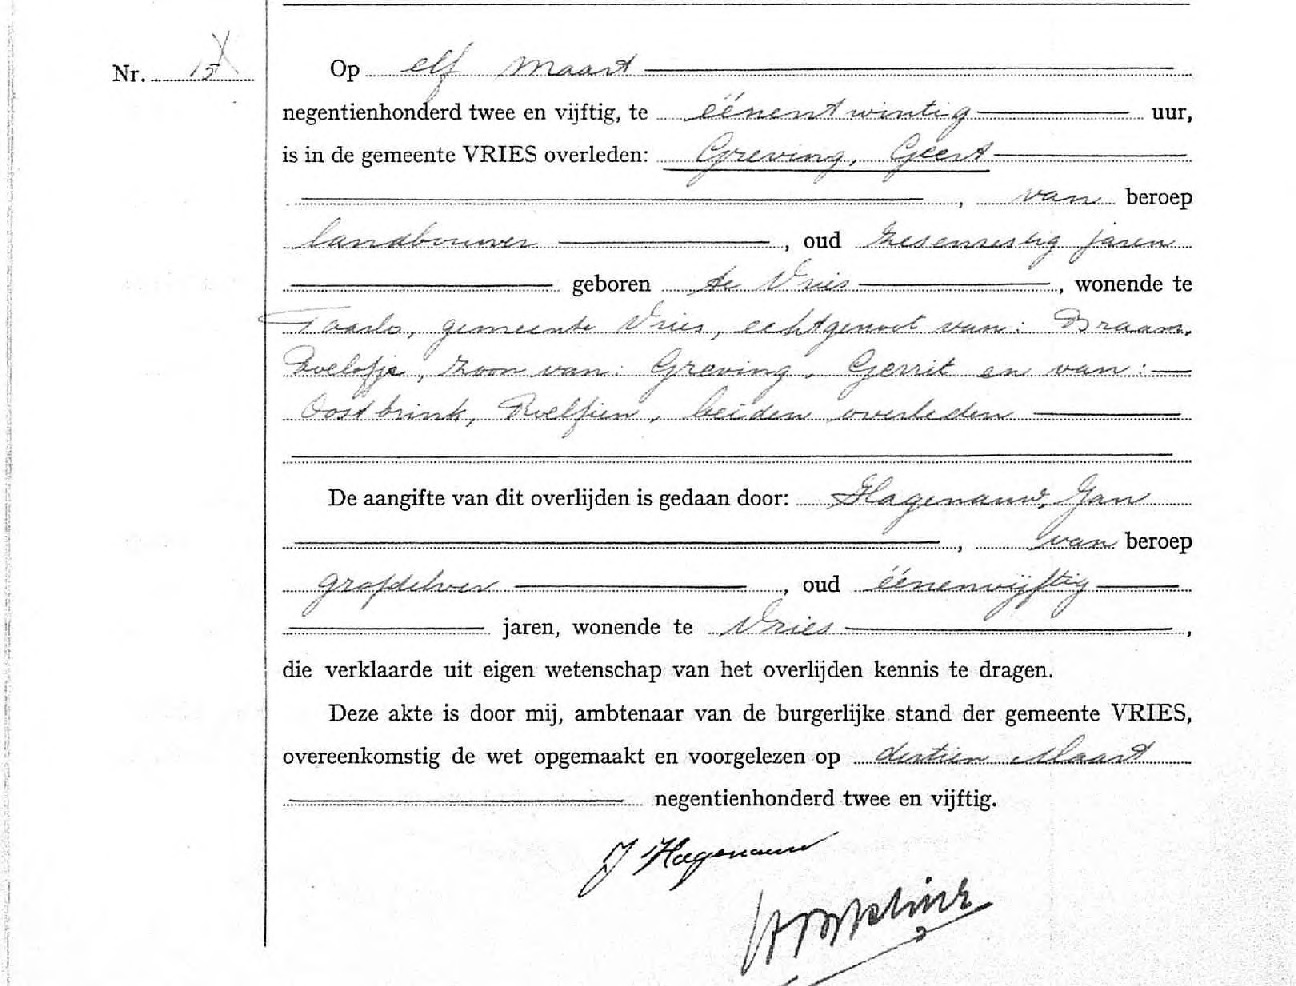 Nr. 15 Op elf maart
negentienhonderd twee en vijftig, te éénentwintig uur,
is in de gemeente VRIES overleden: Greving, Geert
, van beroep
landbouwer , oud zesenzestig jaren
geboren te Vries , wonende te
Taarlo, gemeente Vries, echtgenoot van: Braams,
Roelofje, zoon van: Greving, Gerrit en van:
Oostbrink, Roelfien, beiden overleden
De aangifte van dit overlijden is gedaan door: Hagenauw, Jan
, van beroep
grafdelver , oud éénenvijftig
jaren, wonende te Vries ,
die verklaarde uit eigen wetenschap van het overlijden kennis te dragen.
Deze akte is door mij, ambtenaar van de burgerlijke stand der gemeente VRIES,
overeenkomstig de wet opgemaakt en voorgelezen op dertien Maart
negentienhonderd twee en vijftig.
J Hagenauw